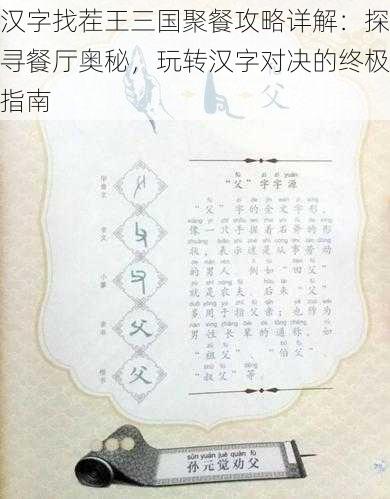 汉字找茬王三国聚餐攻略详解：探
寻餐厅奥秘，玩转汉字对决的终极
指南
父
甲骨文
金文
小篆
隶书
楷书
父
父
fù zì zì yuán
“父”字字源
“父”字的金文字形，
像一只手握着石斧的形
状，表示这是从事劳动
的男人。例如“田父”
就是农夫。后来“父”
多用于指父亲；也作为
男性长辈的通称，如
“祖父”、“伯父”、
“叔父”等。
sūn yuán jué quàn fù
孙元觉劝父